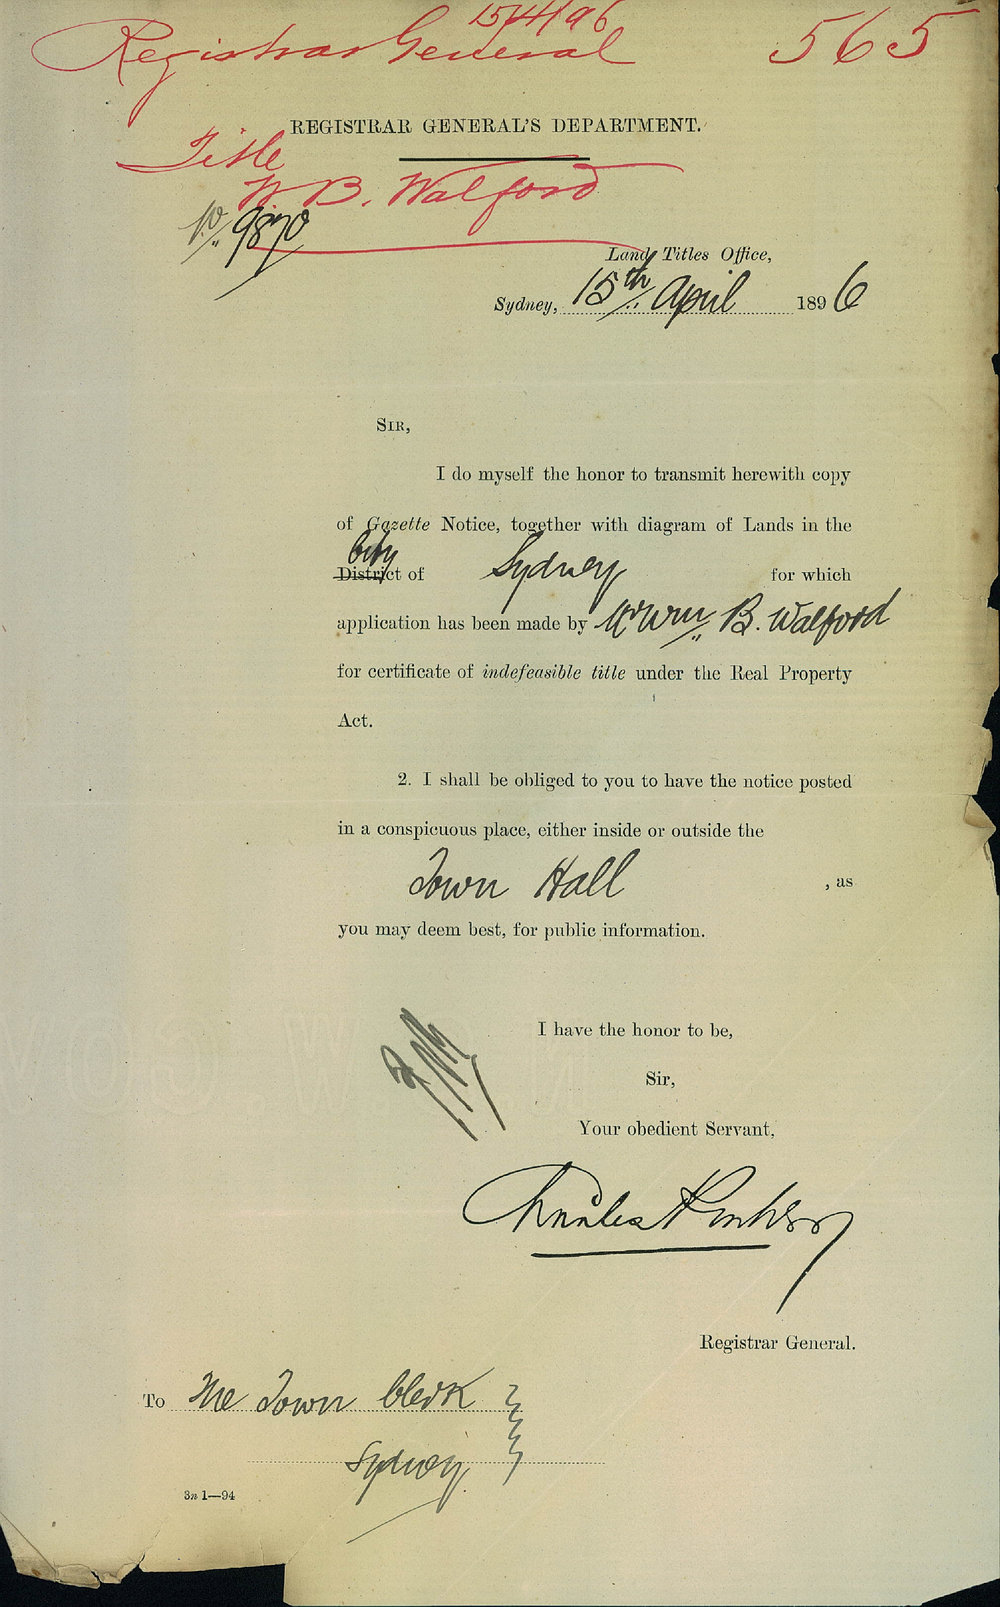 15/4/96
Registrar General 565
REGISTRAR GENERAL'S DEPARTMENT.
Title
W. B. Walford
No 9870
Land Titles Office,
Sydney, 15th April 1896
SIR,
I do myself the honor to transmit herewith copy
of Gazette Notice, together with diagram of Lands in the
City
District of Sydney for which
application has been made by Mr Wm B. Walford
for certificate of indefeasible title under the Real Property
Act.
2. I shall be obliged to you to have the notice posted
in a conspicuous place, either inside or outside the
Town Hall , as
you may deem best, for public information.
I have the honor to be,
Sir,
Your obedient Servant,
Charles
Registrar General.
To The Town Clerk
Sydney
3n 1—94